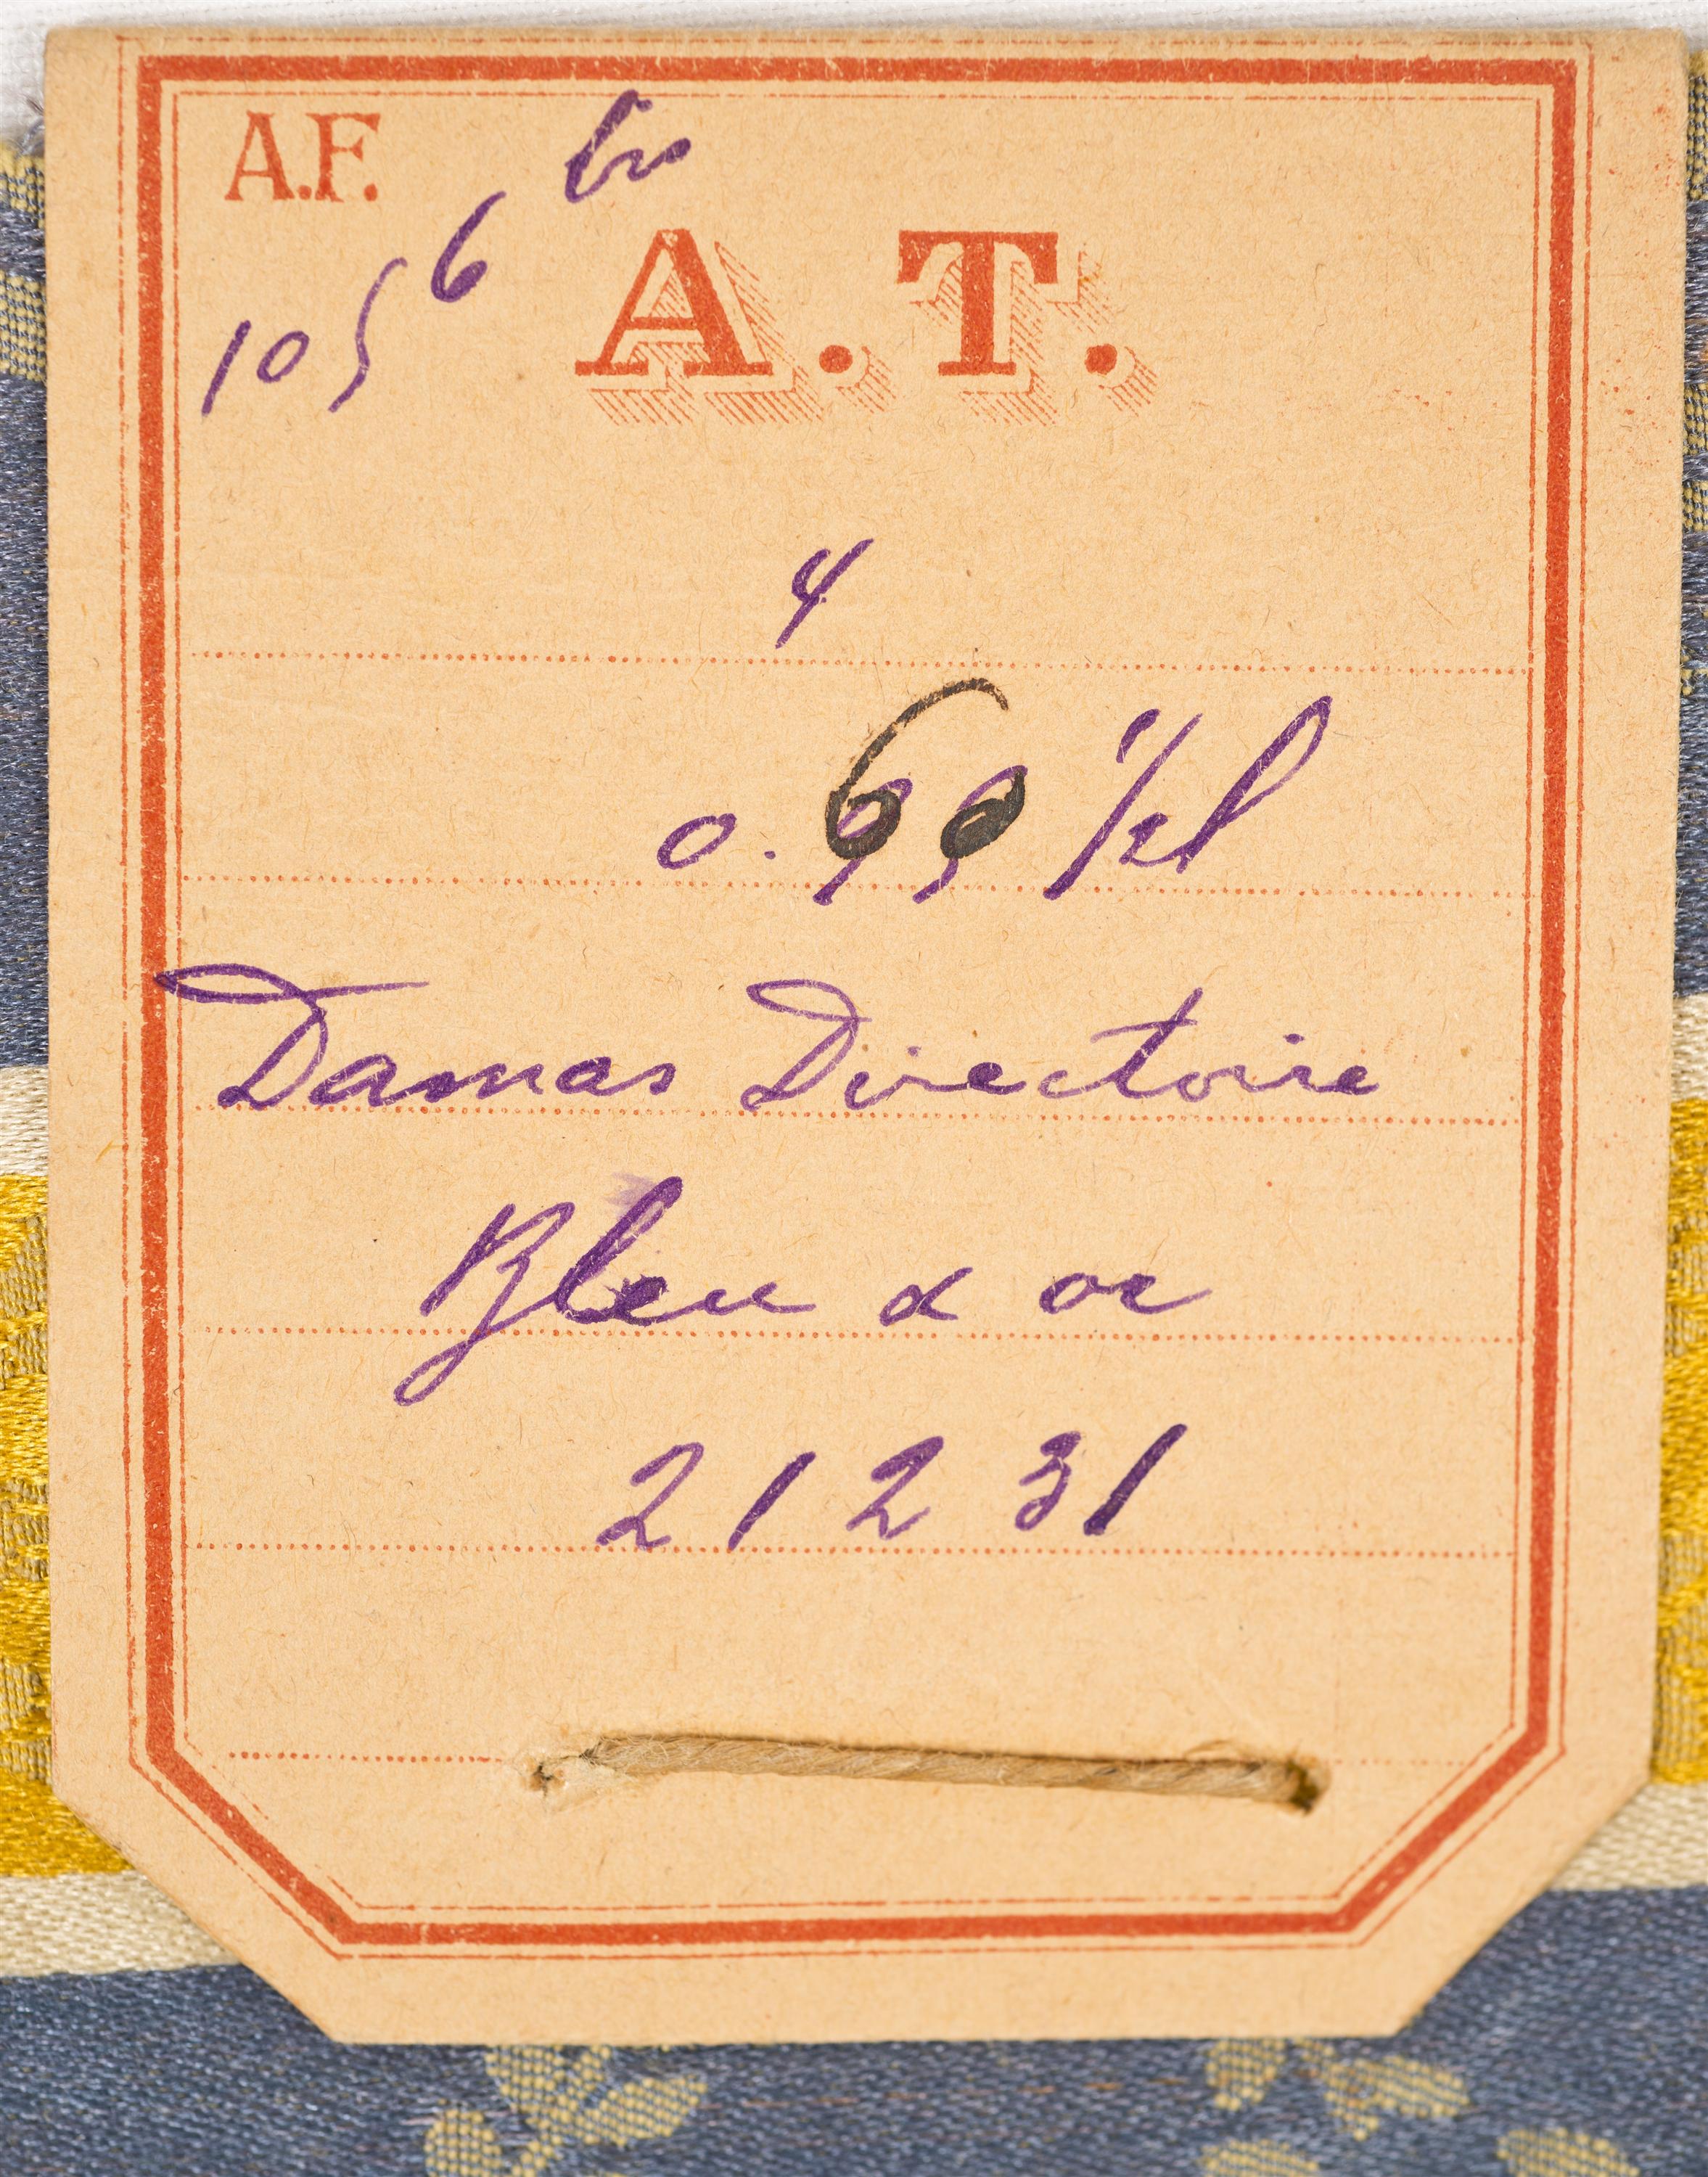 A.F.
1056 bis
A. T.
4
0.60
Damas Directoire
Bleu & or
21231